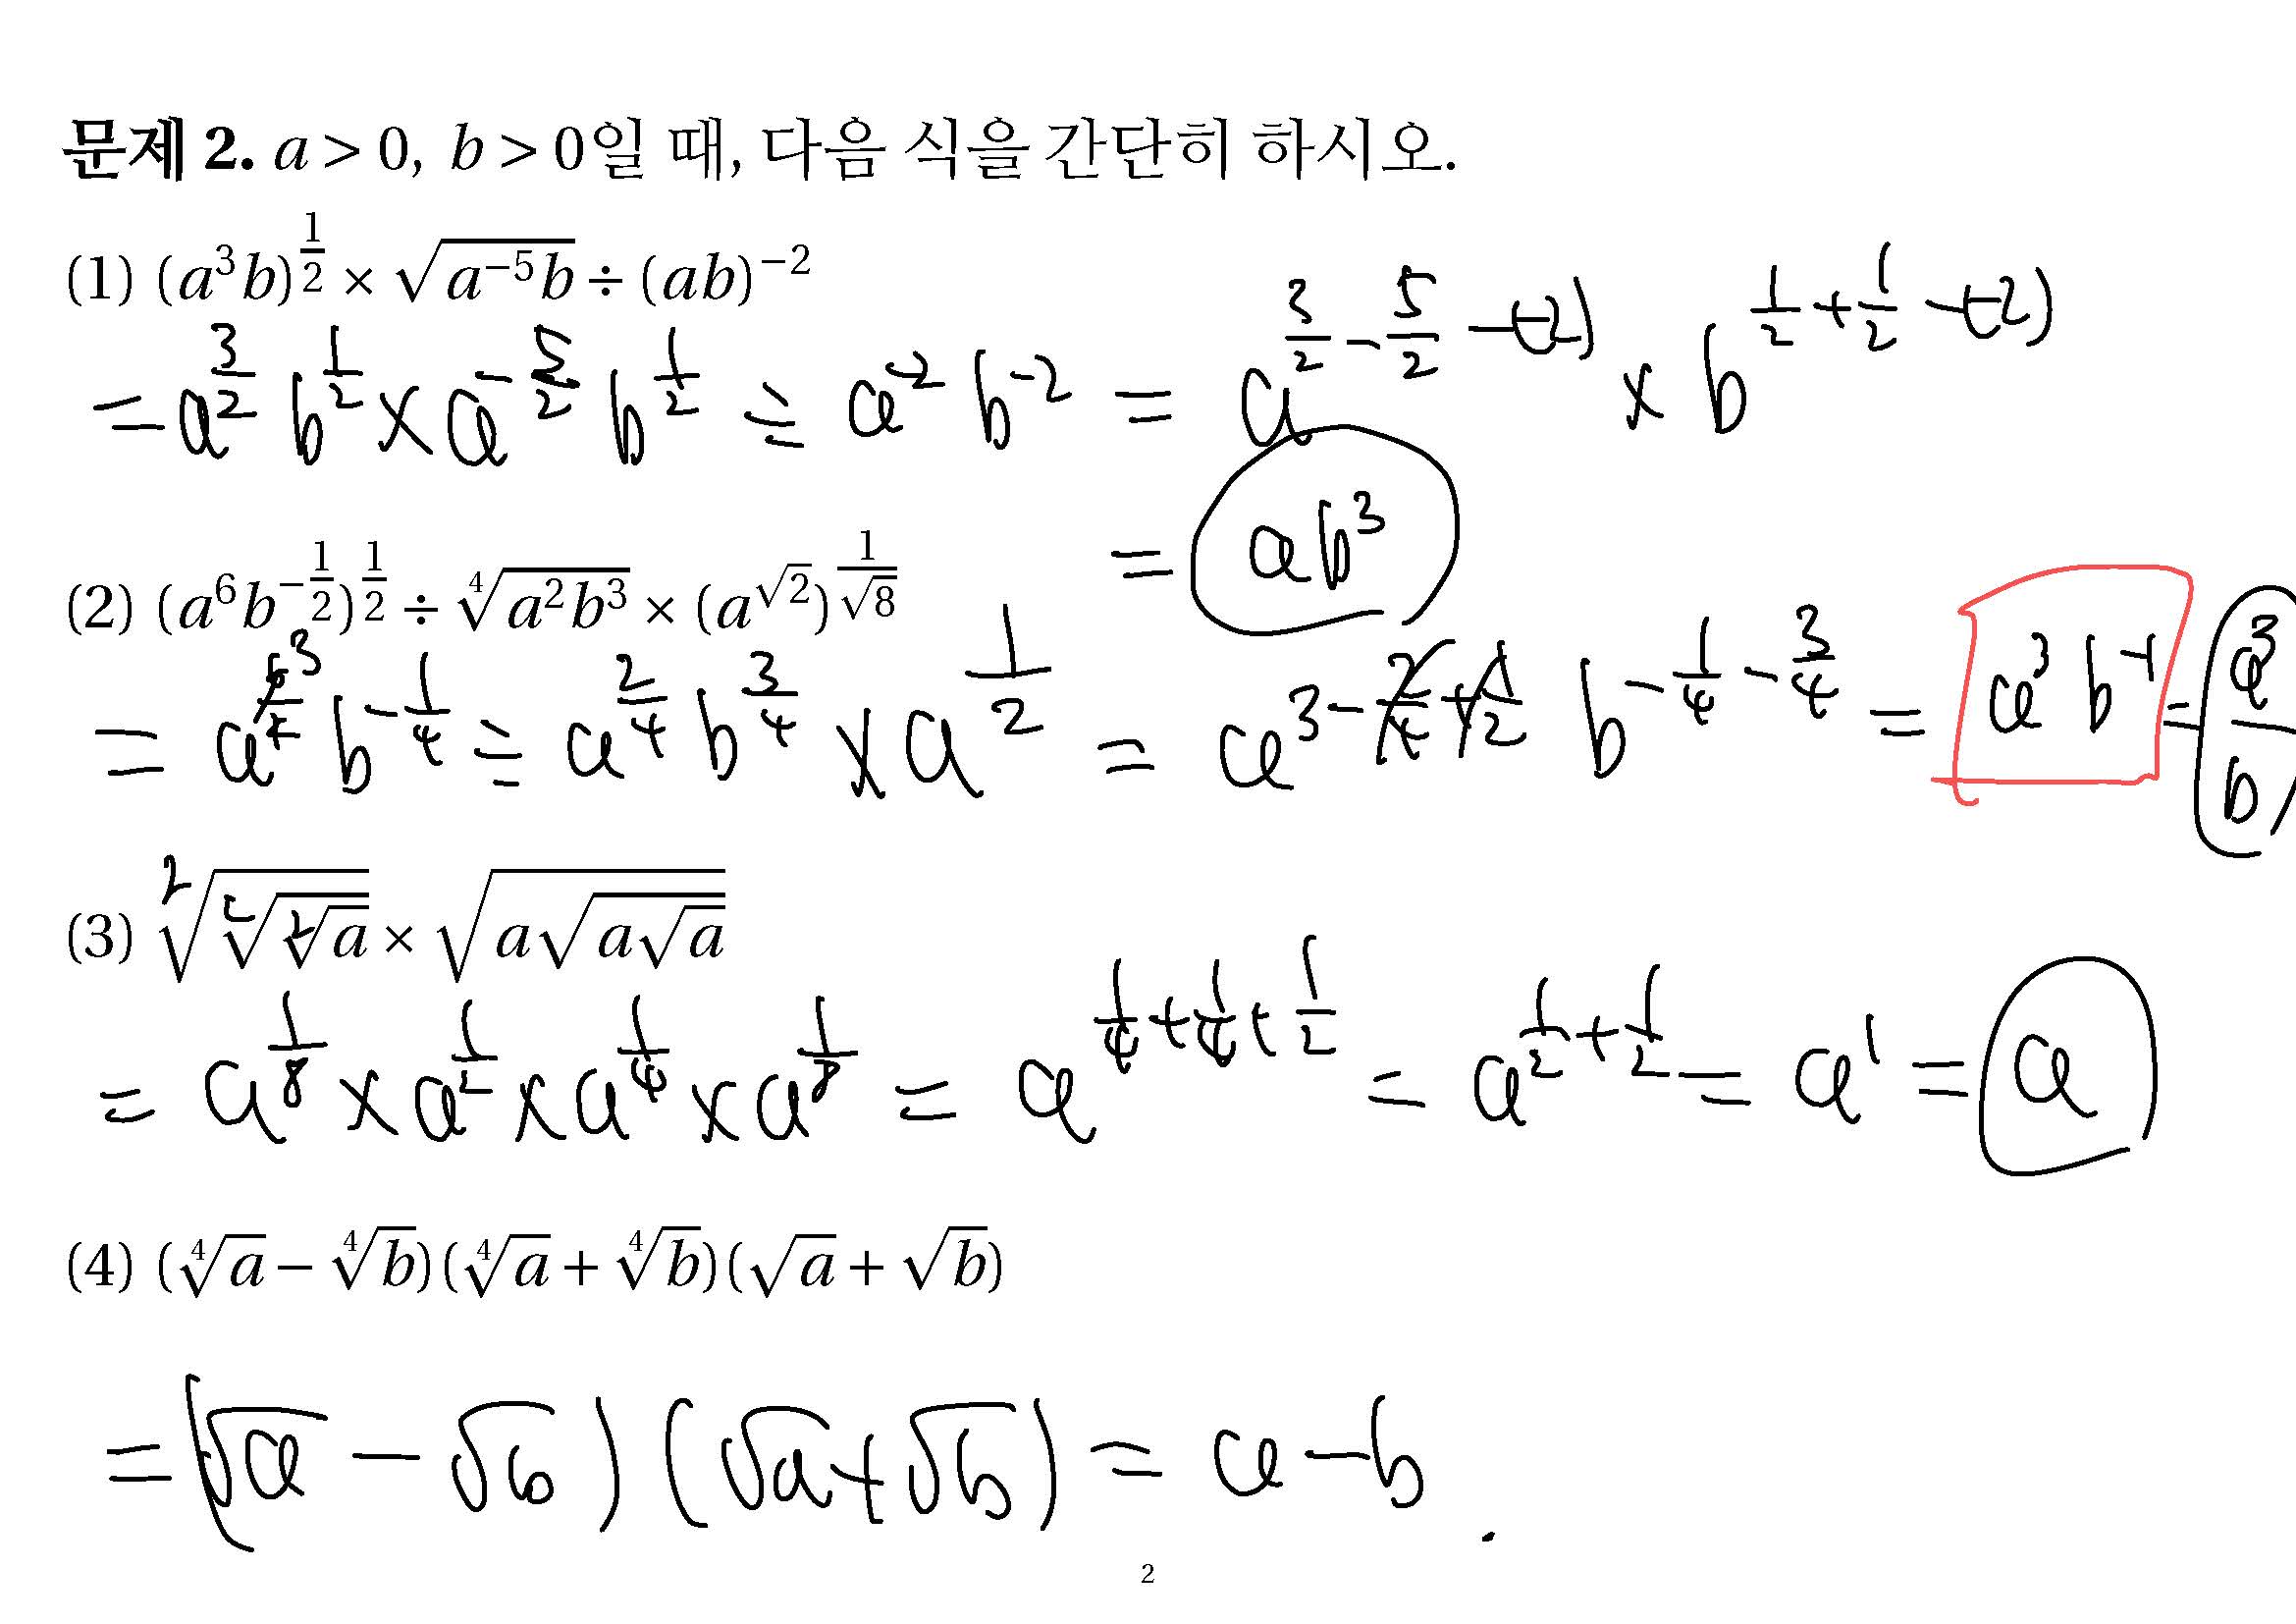 문제 2. a > 0, b > 0일 때, 다음 식을 간단히 하시오.
(1) (a^3b)^{\frac{1}{2}} × \sqrt{a^{-5}b} ÷ (ab)^{-2}
= a^{\frac{3}{2}} b^{\frac{1}{2}} × a^{-\frac{5}{2}} b^{\frac{1}{2}} ÷ a^{-2} b^{-2} = a^{\frac{3}{2} - \frac{5}{2} - (-2)} × b^{\frac{1}{2} + \frac{1}{2} - (-2)}
= ab^3
(2) (a^6b^{-\frac{1}{2}})^{\frac{1}{2}} ÷ \sqrt[4]{a^2b^3} × (a^{\sqrt{2}})^{\frac{1}{\sqrt{8}}}
= a^{3} b^{-\frac{1}{4}} ÷ a^{\frac{2}{4}} b^{\frac{3}{4}} × a^{\frac{1}{2}} = a^{3 - \frac{2}{4} + \frac{1}{2}} b^{-\frac{1}{4} - \frac{3}{4}} = a^3 b^{-1} = \frac{a^3}{b}
(3) \sqrt[2]{\sqrt[2]{\sqrt[2]{a}}} × \sqrt{a\sqrt{a\sqrt{a}}}
= a^{\frac{1}{8}} × a^{\frac{1}{2}} × a^{\frac{1}{4}} × a^{\frac{1}{8}} = a^{\frac{1}{4} + \frac{1}{4} + \frac{1}{2}} = a^{\frac{1}{2} + \frac{1}{2}} = a^1 = a
(4) (\sqrt[4]{a} − \sqrt[4]{b})(\sqrt[4]{a} + \sqrt[4]{b})(\sqrt{a} + \sqrt{b})
= (\sqrt{a} − \sqrt{b})(\sqrt{a} + \sqrt{b}) = a − b.
2